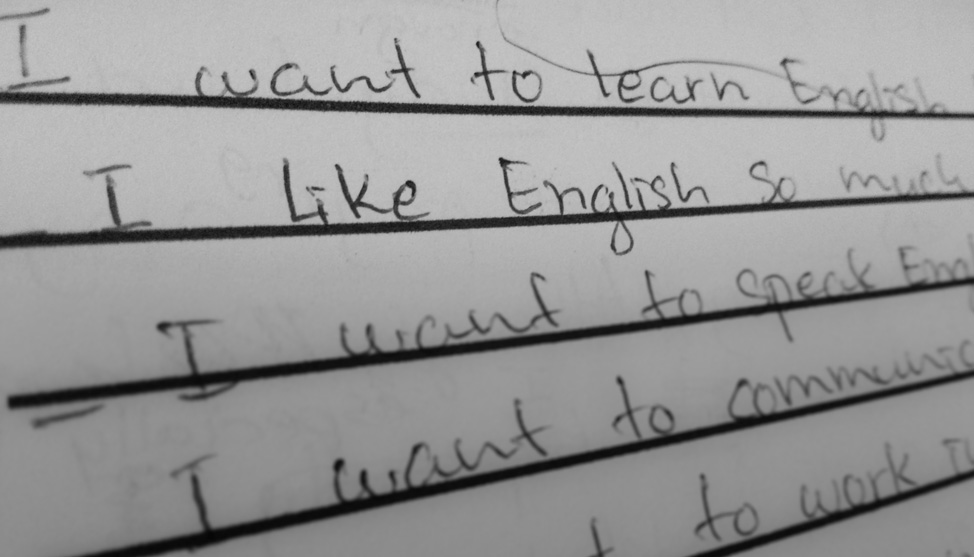 I want to learn English
I Like English so much
I want to speak
I want to
to work